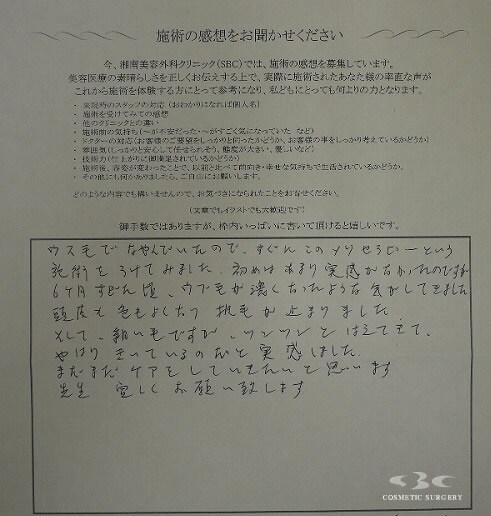 施術の感想をお聞かせください
今、湘南美容外科クリニック(SBC)では、施術の感想を募集しています。
美容医療の素晴らしさを正しくお伝えする上で、実際に施術されたあなた様の率直な声が
これから施術を体験する方にとって参考になり、私どもにとっても何よりの力となります。
・ 来院時のスタッフの対応(おわかりになれば個人名)
・ 施術を受けてみての感想
・ 他のクリニックとの違い
・ 施術前の気持ち(~が不安だった・~がすごく気になっていた など)
・ ドクターの対応(お客様のご要望をしっかりと伺ったかどうか、お客様の事をしっかり考えているかどうか)
・ 雰囲気(しっかりと安心して任せられそう、態度が大きい、優しいなど)
・ 技術力(仕上がりに御満足されているかどうか)
・ 施術後、容姿が変わったことで、以前と比べて前向き・幸せな気持ちで生活されているかどうか。
・ その他にも何かありましたら、ご自由にお願いします。
どのような内容でも構いませんので、お気づきになられたことをお寄せください。
(文章でもイラストでも大歓迎です)
御手数ではありますが、枠内いっぱいに書いて頂けると嬉しいです。
ウス毛でなやんでいたので、すぐにこのメソセラピーという
施術をうけてみました。初めはあまり実感がなかったのですが
6ヶ月すぎた頃、ウブ毛が濃くなったような気がしてきました
頭皮も色もよくなり抜毛が止まりました。
そして、細い毛ですが、ツンツンとはえてきて、
やはりきいているのだと実感しました。
まだまだケアをしていきたいと思います
先生 宜しくお願い致します
COSMETIC SURGERY